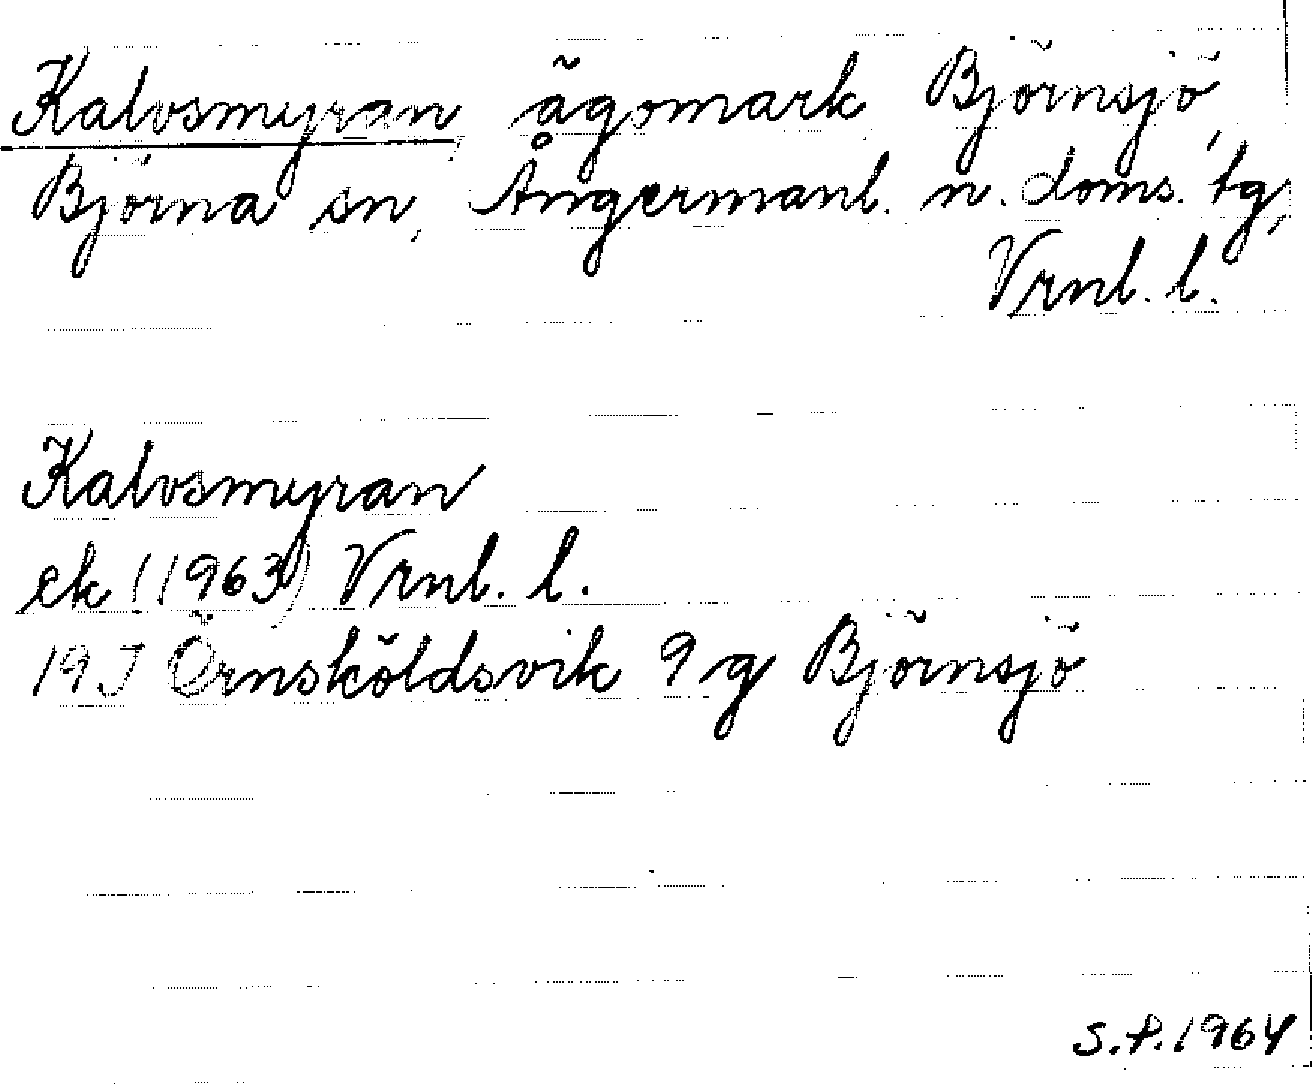 Kalvsmyran, ägomark Björnsjö,
Björna sn, Ångermanl. n. doms. tg,
Vrnl. l.
Kalvsmyran
ek (1963) Vrnl. l.
19J Örnsköldsvik 9g Björnsjö
S.P. 1964